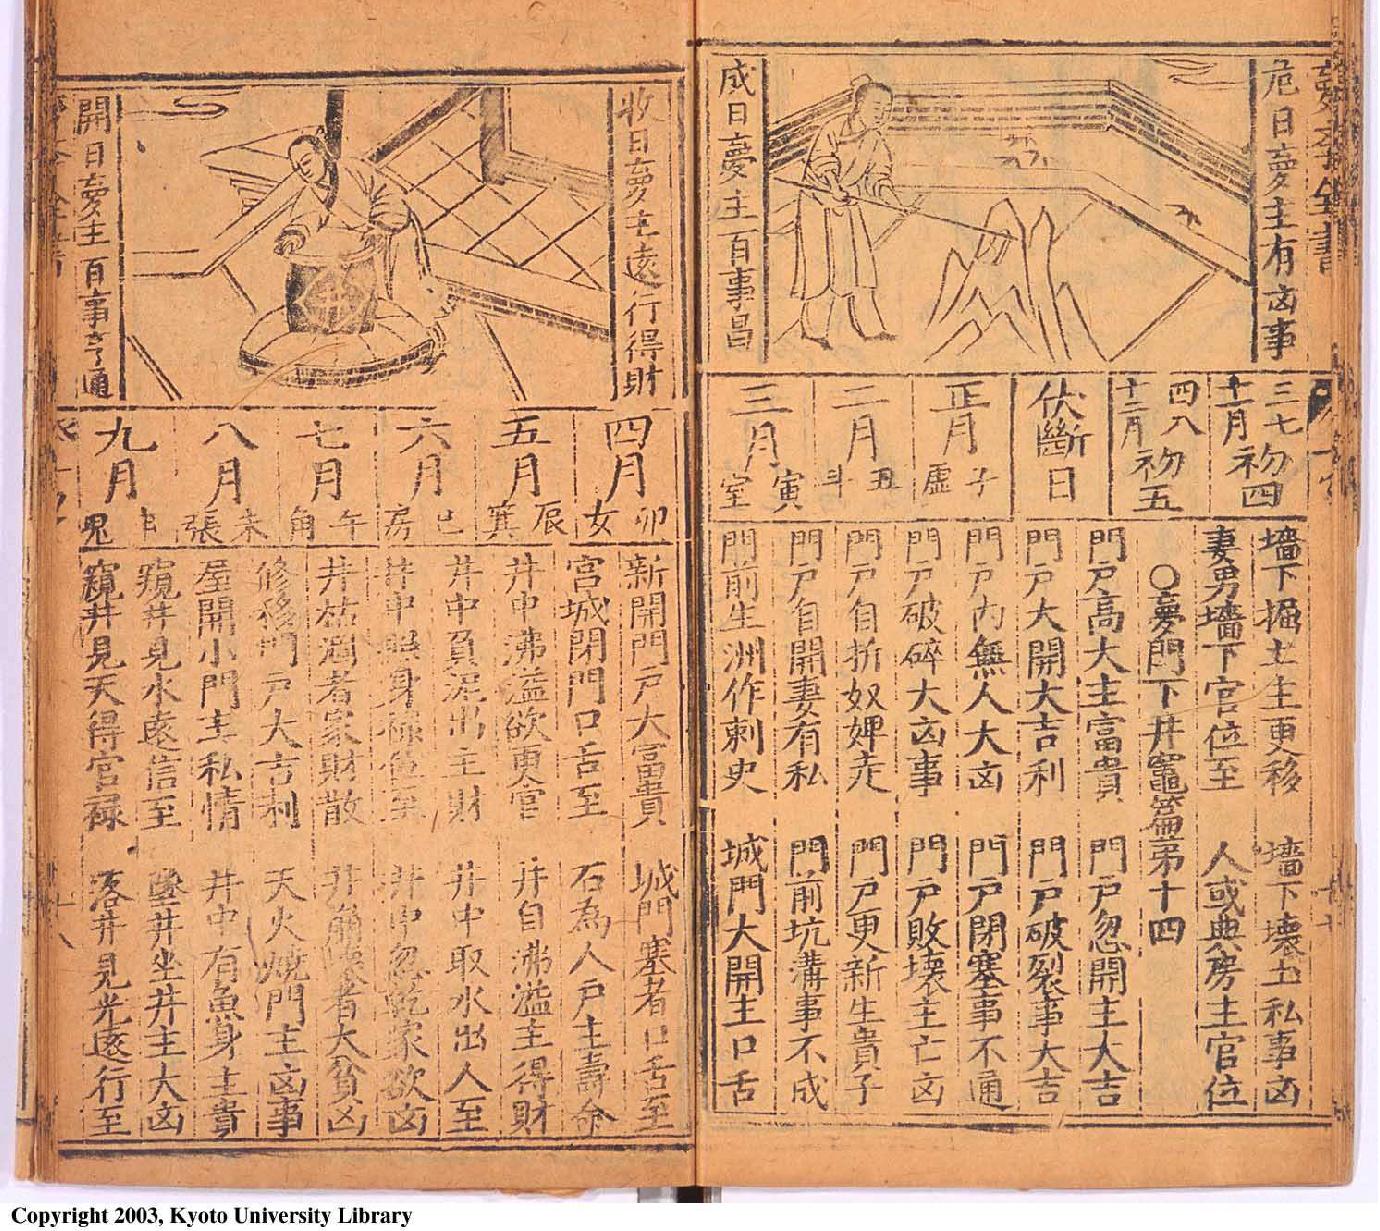 危日夢主有凶事
成日夢主百事昌
三七
十一月
初四
四八
十二月
初五
伏斷日
正月
子
虛
二月
丑
斗
三月
寅
室
墻下掘土生更移
墻下壞土私事凶
妻男墻下官位至
人或典房主官位
○夢門下井竈篇第十四
門戶高大主富貴
門戶忽開主大吉
門戶大開大吉利
門戶破裂事大吉
門戶內無人大凶
門戶閉塞事不通
門戶破碎大凶事
門戶敗壞主亡凶
門戶自折奴婢走
門戶更新生貴子
門戶自開妻有私
門前坑溝事不成
門前生洲作刺史
城門大開主口舌
收日夢主遠行得財
開日夢主百事亨通
四月
卯
女
五月
辰
箕
六月
巳
房
七月
午
角
八月
未
張
九月
申
鬼
新開門戶大富貴
城門塞者口舌至
宮城閉門口舌至
石為人戶主壽命
井中沸溢欲更官
井自沸溢主得財
井中負泥出主財
井中取水出人至
井中照身祿位至
井中忽乾家欲凶
井枯涸者家財散
井崩壞者大貧凶
修移門戶大吉利
天火燒門主凶事
屋開小門主私情
井中有魚身主貴
窺井見水遠信至
墜井坐井主大凶
窺井見天得官祿
落井見光遠行至
Copyright 2003, Kyoto University Library